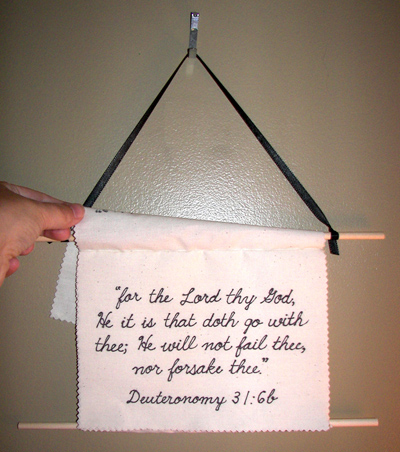 "for the Lord thy God,
He it is that doth go with
thee; He will not fail thee,
nor forsake thee."
Deuteronomy 31:6b